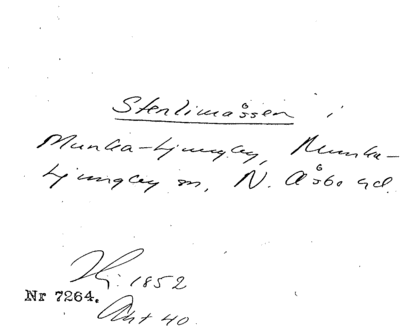 Stenlimåssen i
Munka-Ljungby, Munka-
Ljungby sn, N. Åsbo hd.
1852
Nr 7264.
Akt 40